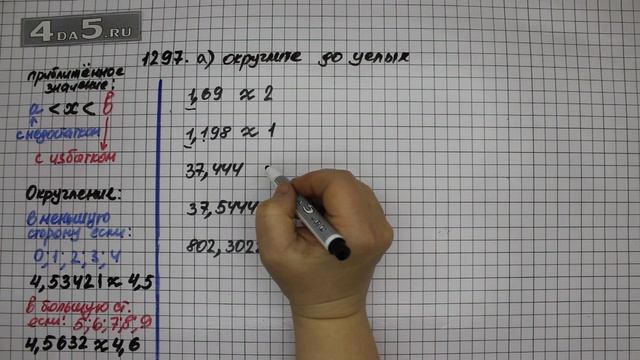 4DA5.RU
1297. а) округлите до целых
приближённое
значение:
a < x < b
с недостатком
с избытком
Округление:
в меньшую
сторону если:
0; 1; 2; 3; 4
4,53421 ≈ 4,5
в большую ст.
если: 5; 6; 7; 8, 9
4,5632 ≈ 4,6
1,69 ≈ 2
1,198 ≈ 1
37,444
37,5444
802,302